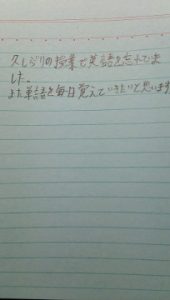 久しぶりの授業で英語を忘れていま
した。
また単語を毎日覚えていきたいと思います